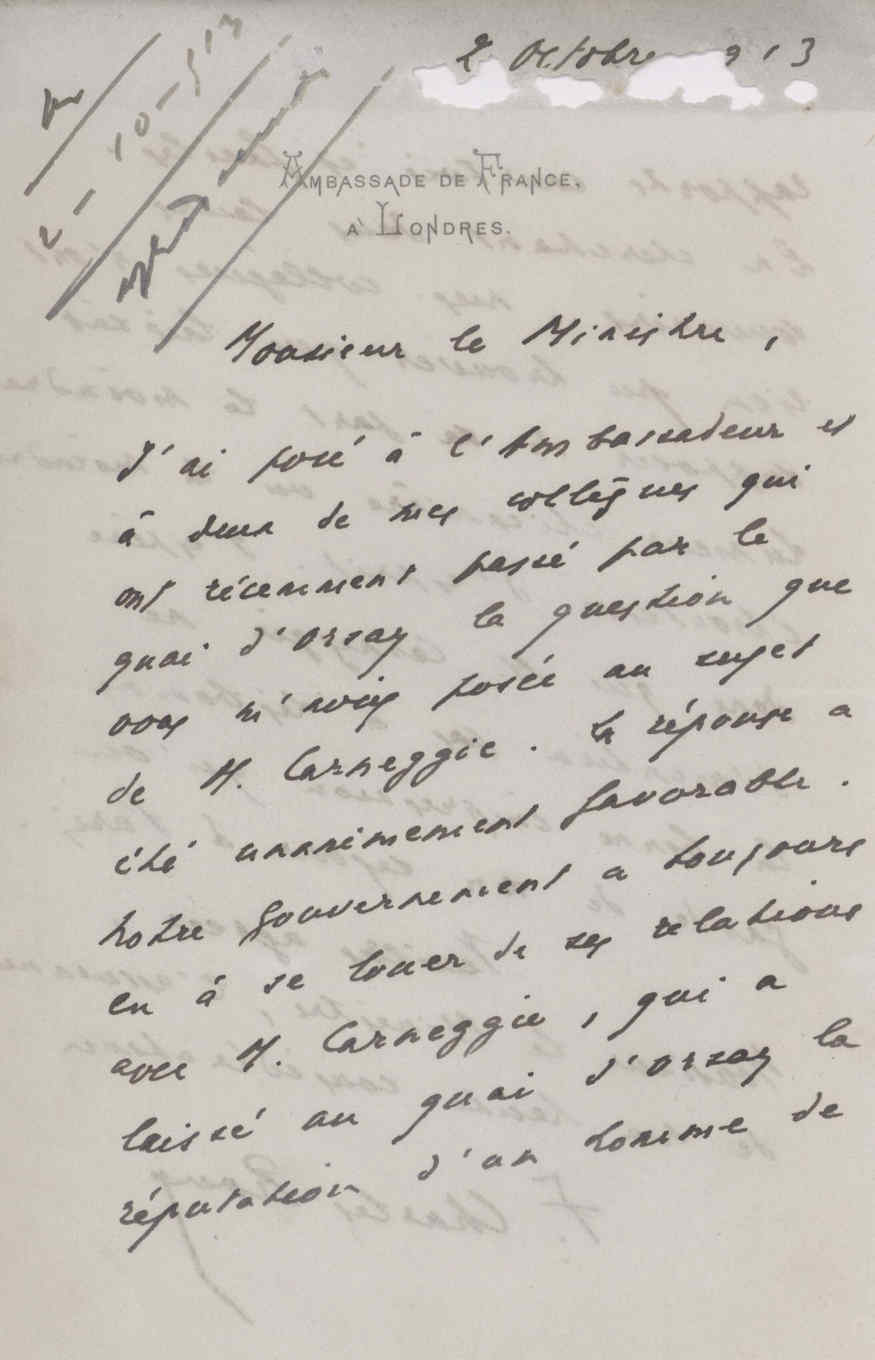 2 Octobre 913
2-10-913
AMBASSADE DE FRANCE,
À LONDRES.
Monsieur le Ministre,
J'ai posé à l'Ambassadeur et
à deux de mes collègues qui
ont récemment passé par le
quai d'Orsay la question que
vous m'aviez posée au sujet
de M. Carneggie. La réponse a
été unanimement favorable.
Notre Gouvernement a toujours
eu à se louer de ses relations
avec M. Carneggie, qui a
laissé au quai d'Orsay la
réputation d'un homme de